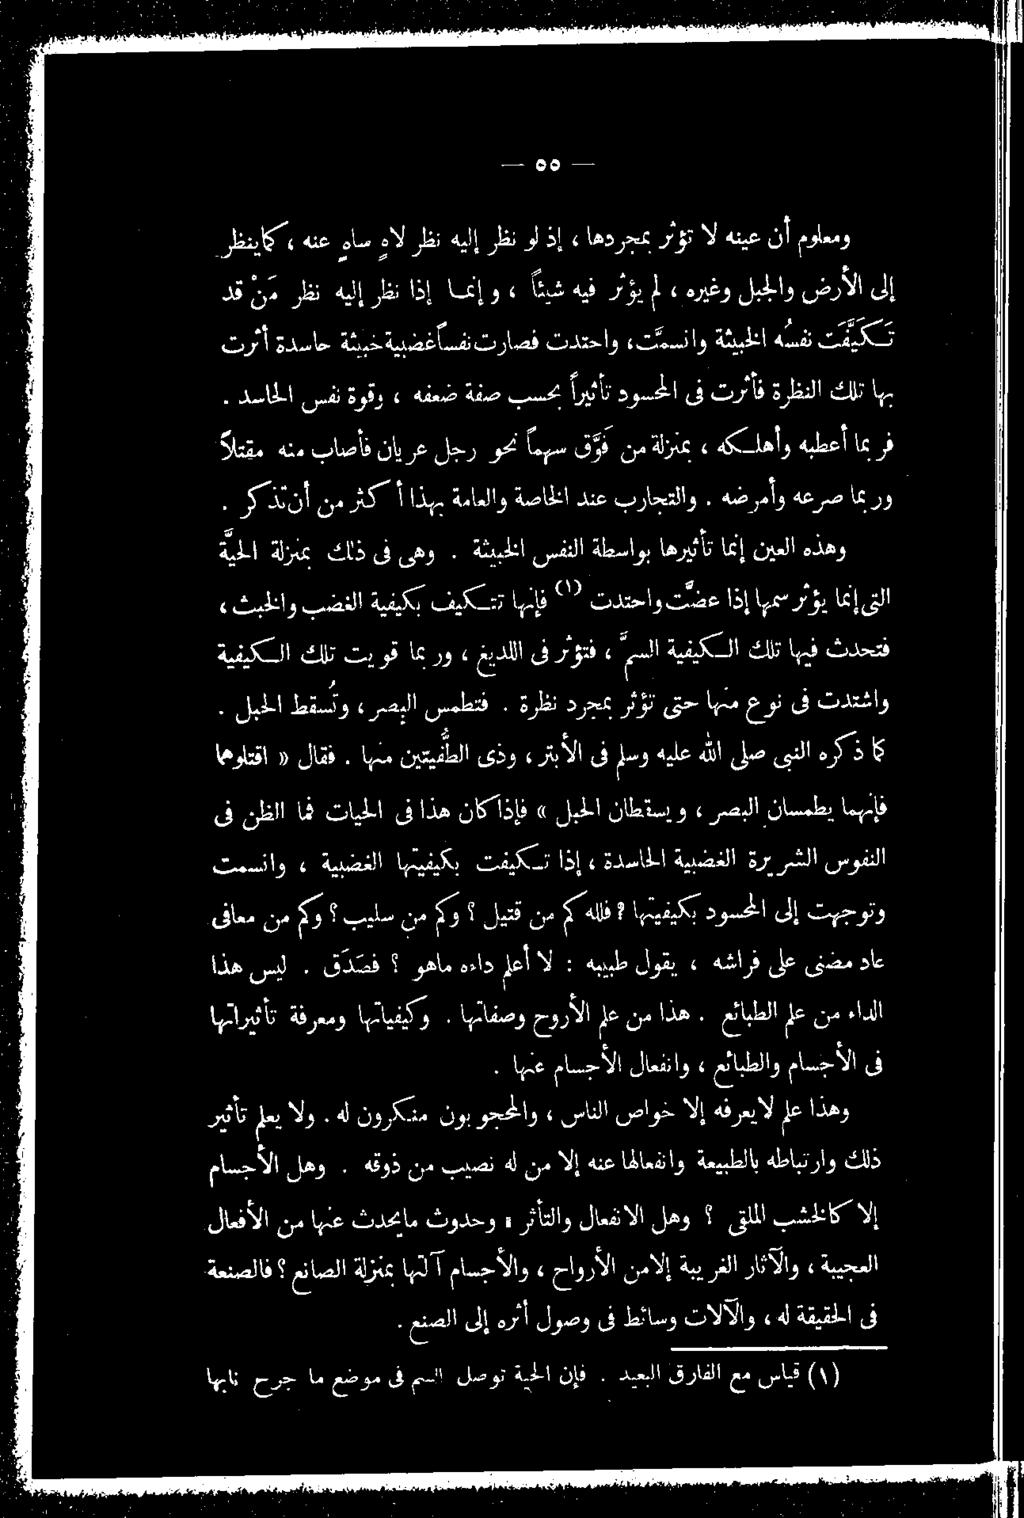 — ٥٥ —
ومعلوم أن عينه لا تؤثر بمجردها ، إذ لو نظر إليه نظر لاهٍ ساهٍ عنه ، كما ينظر
إلى الأرض والجبل وغيره ، لم يؤثر فيه شيئاً ، و إنما إذا نظر إليه نظر مَنْ قد
تَكَيَّفَت نفسُه الخبيثة وانسمَّت ، واحتدت فصارت نفساً غضبية خبيثة حاسدة أثرت
بها تلك النظرة فأثرت فى المحسود تأثيراً بحسب صفة ضعفه ، وقوة نفس الحاسد .
فربما أعطبه وأهلكه ، بمنزلة من فَوَّق سهماً نحو رجل عريان فأصاب منه مقتلاً
وربما صرعه وأمرضه . والتجارب عند الخاصة والعامة بهذا أكثر من أن تذكر .
وهذه العين إنما تأثيرها بواسطة النفس الخبيثة . وهى فى ذلك بمنزلة الحيَّة
التى إنما يؤثر سمها إذا عضَّت واحتدت (١) فإنها تتكيف بكيفية الغضب والخبث ،
فتحدث فيها تلك الكيفية السمّ ، فتؤثر فى اللديغ ، وربما قويت تلك الكيفية
واشتدت فى نوع منها حتى تؤثر بمجرد نظرة . فتطمس البصر ، وتُسقط الحبل .
كما ذكره النبى صلى الله عليه وسلم فى الأبتر ، وذى الطُّفيتين منها . فقال « اقتلوهما
فإنهما يطمسان البصر ، و يسقطان الحبل » فإذا كان هذا فى الحيات فما الظن فى
النفوس الشريرة الغضبية الحاسدة ، إذا تكيفت بكيفيتها الغضبية ، وانسمت
وتوجهت إلى المحسود بكيفيتها ؟ فلله كم من قتيل ؟ وكم من سليب ؟ وكم من معافى
عاد مضنى على فراشه ، يقول طبيبه : لا أعلم داءه ماهو ؟ فصَدَق . ليس هذا
الداء من علم الطبائع . هذا من علم الأروح وصفاتها . وكيفياتها ومعرفة تأثيراتها
فى الأجسام والطبائع ، وانفعال الأجسام عنها .
وهذا علم لا يعرفه إلا خواص الناس ، والمحجوبون منكرون له . ولا يعلم تأثير
ذلك وارتباطه بالطبيعة وانفعالها عنه إلا من له نصيب من ذوقه . وهل الأجسام
إلا كالخشب الملقى ؟ وهل الانفعال والتأثر ، وحدوث مايحدث عنها من الأفعال
العجيبة ، والآثار الغريبة إلا من الأرواح ، والأجسام آلتها بمنزلة الصانع ؟ فالصنعة
فى الحقيقة له ، والآلات وسائط فى وصول أثره إلى الصنع .
(١) قياس مع الفارق البعيد . فإن الحية توصل السم فى موضع ما جرح نابها